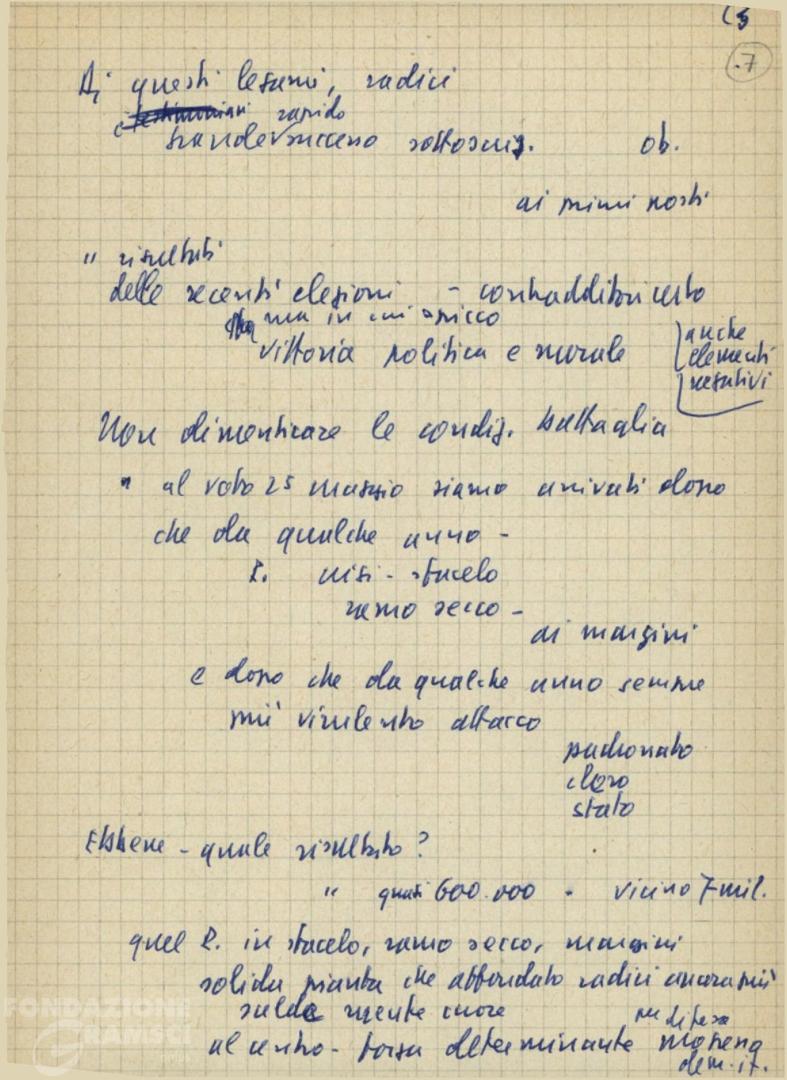 15
.7
Di questi legami, radici
e testimoniani rapido
ob.
ai primi posti
" risultati
delle recenti elezioni - contradditori certo
ma in cui spicco
vittoria politica e morale
anche
elementi
negativi
Non dimenticare le condiz. battaglia
" al voto 25 maggio siamo arrivati dopo
che da qualche anno -
P. crisi - sfacelo
ramo secco -
ai margini
e dopo che da qualche anno sempre
più virulento attacco
padronato
clero
stato
Ebbene - quale risultato?
" quasi 600.000 - vicino 7 mil.
quel P. in sfacelo, ramo secco, margini
solida pianta che affondato radici ancora più
salde mente cuore
al centro - forza determinante
per difesa
dem. it.
FONDAZIONE
GRAMSCI